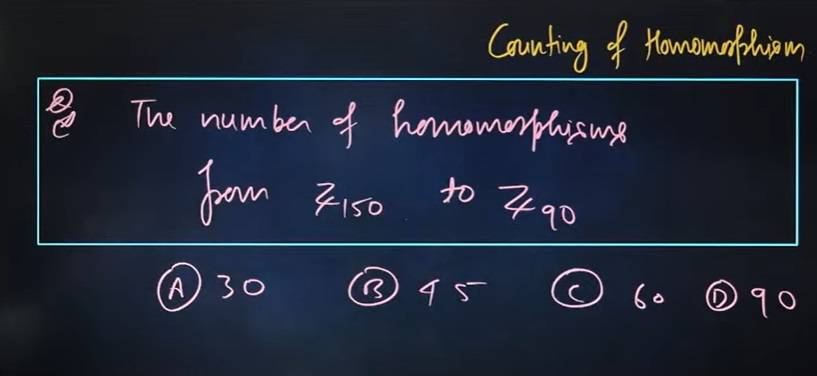 Counting of Homomorphism
Q The number of homomorphisms
from ℤ150 to ℤ90
(A) 30 (B) 45 (C) 60 (D) 90